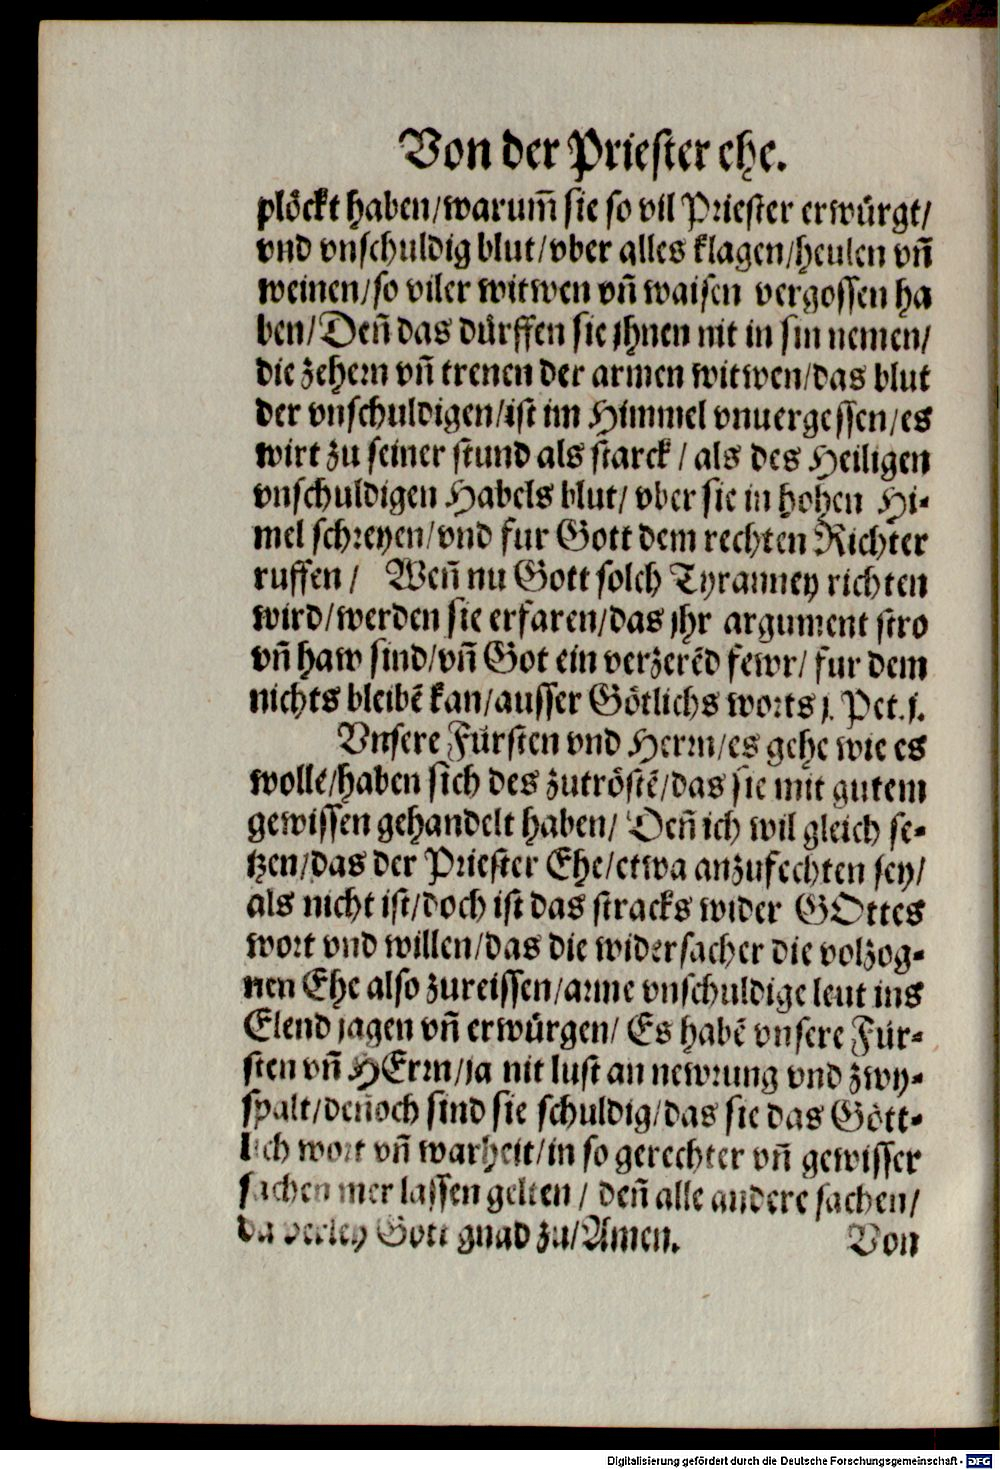 Von der Priester ehe.
plöckt haben/warum̃ sie so vil Priester erwürgt/
vnd vnschuldig blut/vber alles klagen/heulen vñ
weinen/so viler witwen vñ waisen vergossen ha
ben/Deñ das dürffen sie jhnen nit in sin nemen/
die zehern vñ trenen der armen witwen/das blut
der vnschuldigen/ist im Himmel vnuergessen/es
wirt zu seiner stund als starck/ als des Heiligen
vnschuldigen Habels blut/ vber sie in hohen Hi-
mel schreyen/vnd fur Gott dem rechten Richter
ruffen/ Weñ nu Gott solch Tyranney richten
wird/werden sie erfaren/das jhr argument stro
vñ haw sind/vñ Got ein verzerēd fewr/ fur dem
nichts bleibē kan/ausser Götlichs worts j. Pet. j.
Vnsere Fürsten vnd Herrn/es gehe wie es
wollē/haben sich des zutröstē/das sie mit gutem
gewissen gehandelt haben/ Deñ ich wil gleich se-
tzen/das der Priester Ehe/etwa anzufechten sey/
als nicht ist/doch ist das stracks wider GOttes
wort vnd willen/das die widersacher die volzog-
nen Ehe also zureissen/arme vnschuldige leut ins
Elend jagen vñ erwürgen/ Es habē vnsere Für-
sten vñ HErrn/ja nit lust an newrung vnd zwy-
spalt/deñoch sind sie schuldig/das sie das Gött-
lich wort vñ warheit/in so gerechter vñ gewisser
sachen mer lassen gelten/ deñ alle andere sachen/
da verley Gott gnad zu/Amen. Von
Digitalisierung gefördert durch die Deutsche Forschungsgemeinschaft - DFG